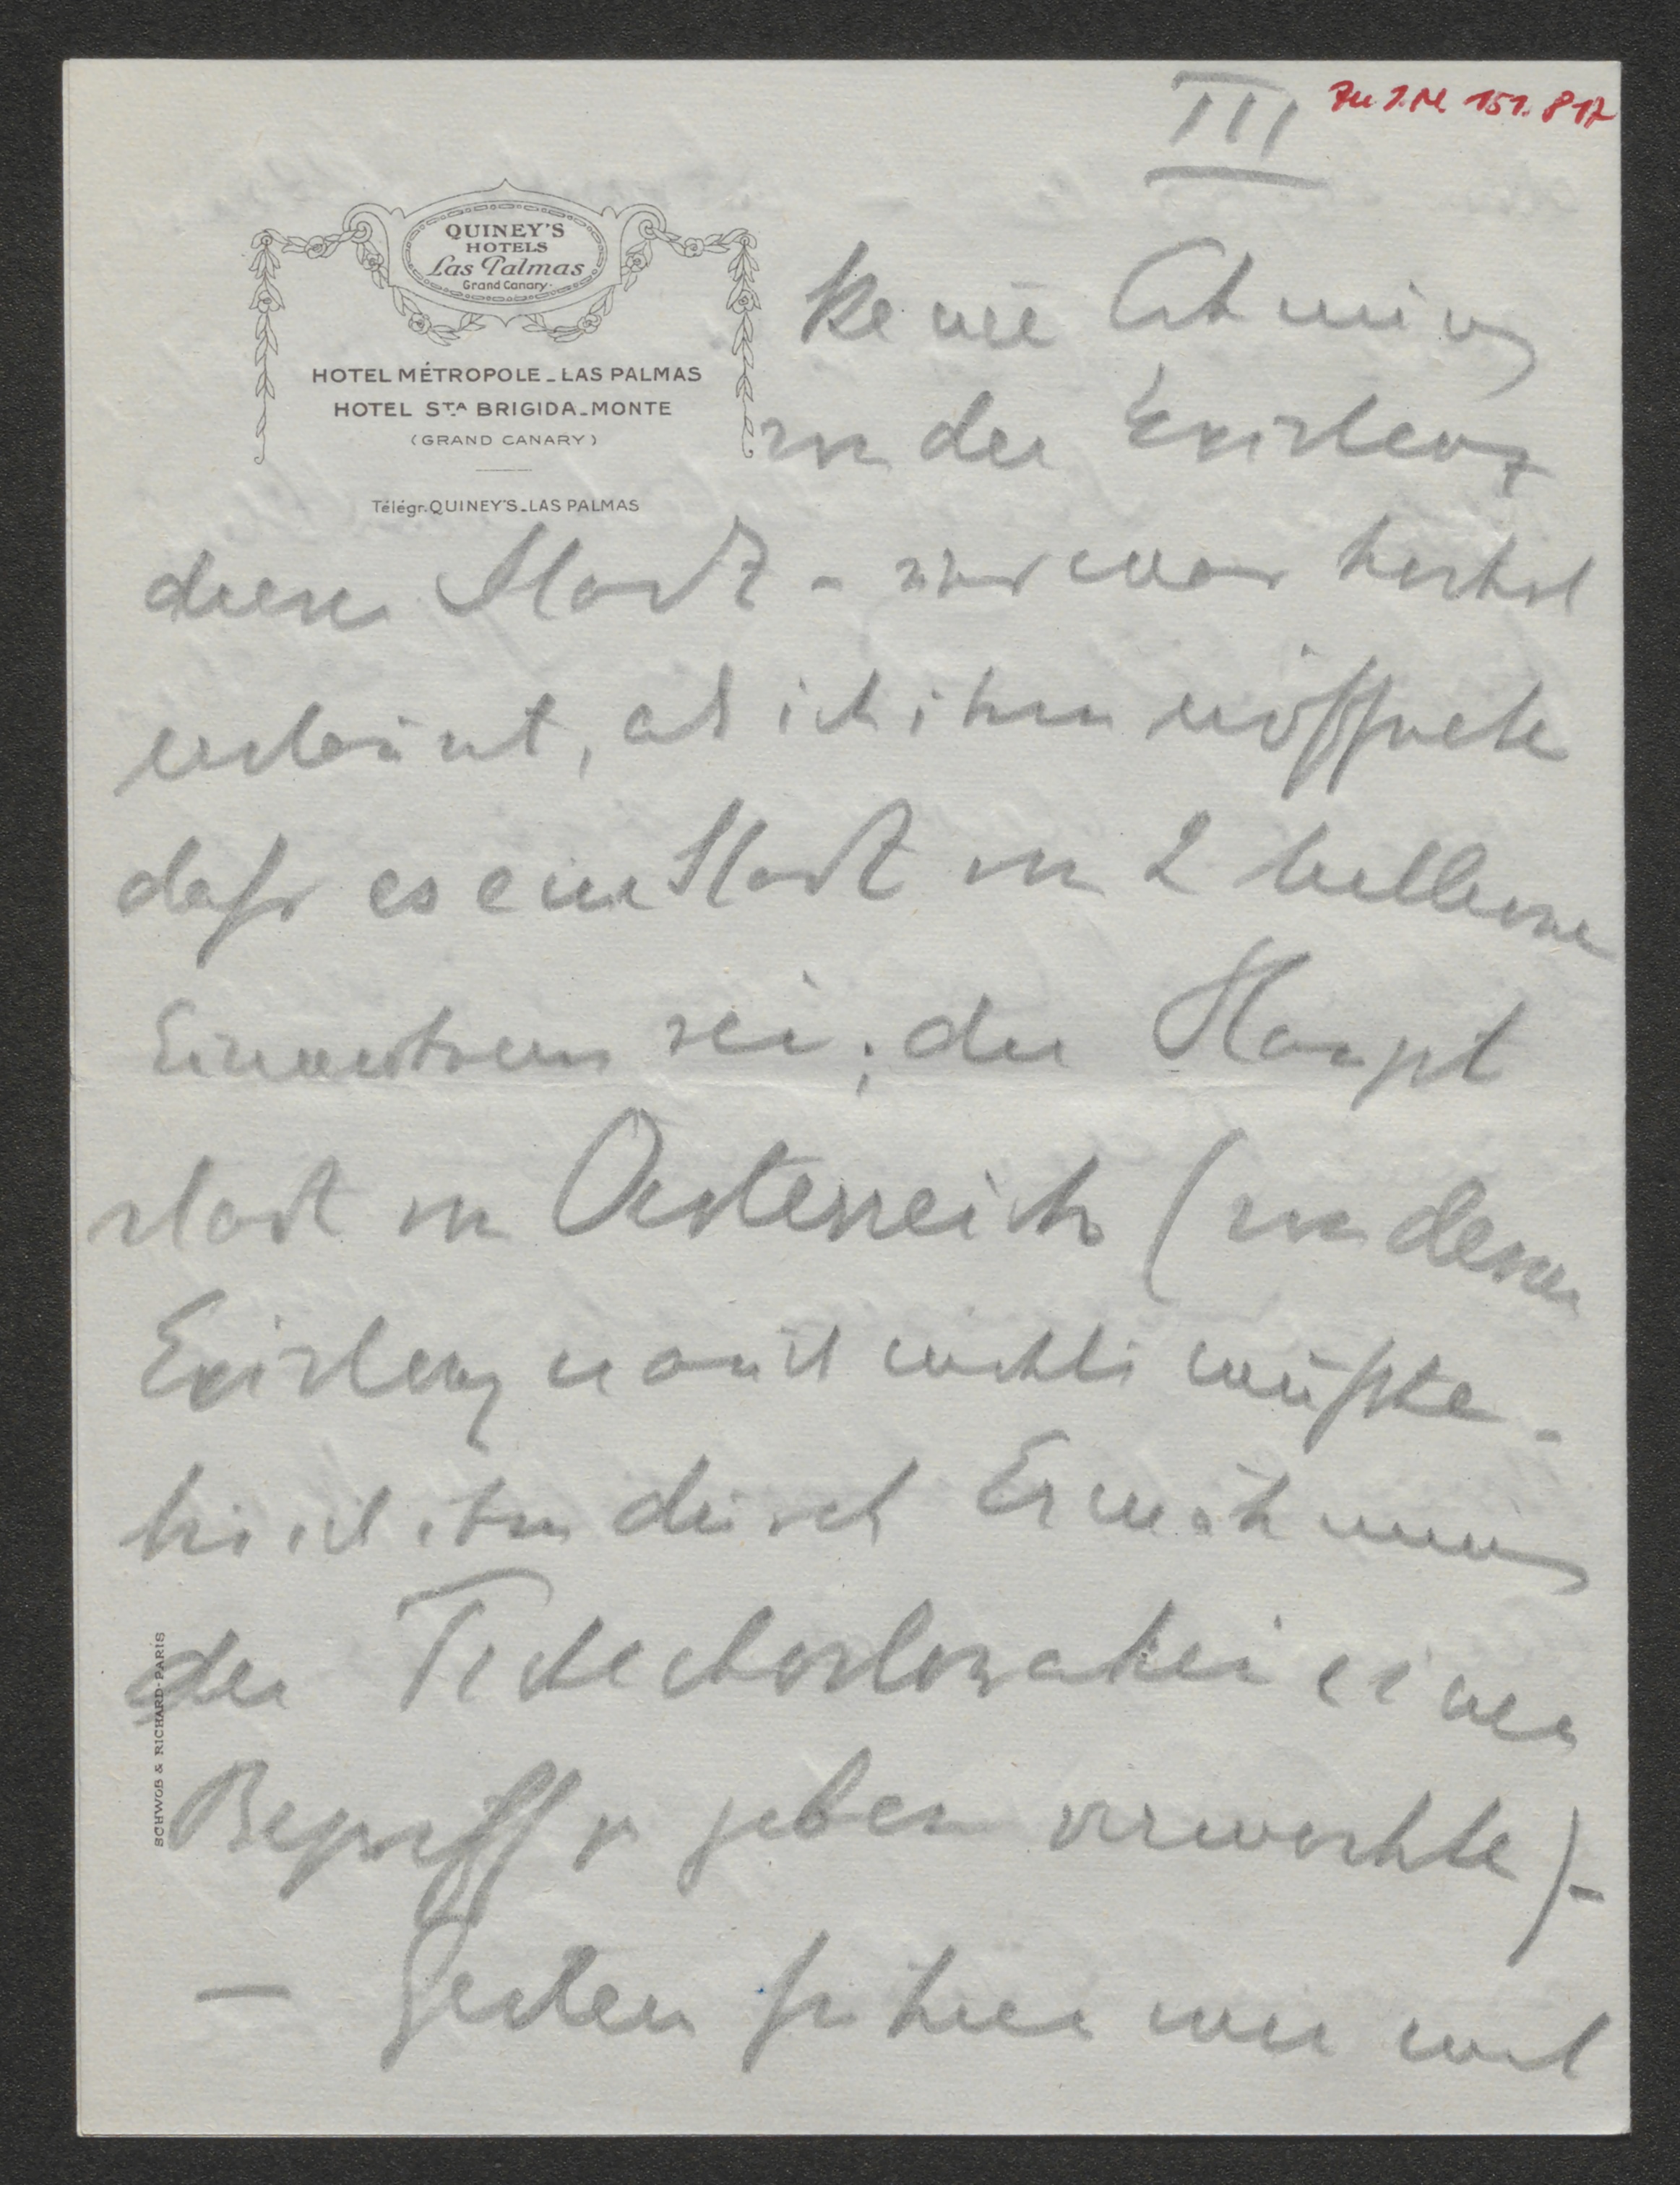 III
Zu I.N. 151.817
QUINEY'S
HOTELS
Las Palmas
Grand Canary.
HOTEL MÉTROPOLE_LAS PALMAS
HOTEL STA BRIGIDA_MONTE
(GRAND CANARY)
Télégr. QUINEY'S_LAS PALMAS
keine Ahnung
von der Existenz
dieser Stadt - und war höchst
erstaunt, als ich ihm eröffnete
dass es eine Stadt von 2 Millionen
Einwohnern sei; der Haupt
stadt von Oesterreich (von dessen
Existenz er auch nichts wußte -
bis ich ihm durch Erwähnung
der Tschechoslowakei einen
Begriff zu geben versuchte) -
— Gestern fuhren wir mit
SCHWOB & RICHARD-PARIS